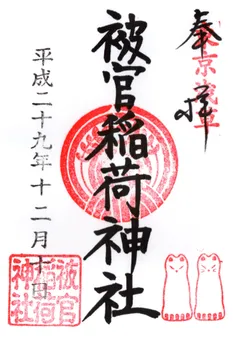 奉拝
東京浅草
被官稲荷神社
平成二十九年十二月十日
被官稲荷神社